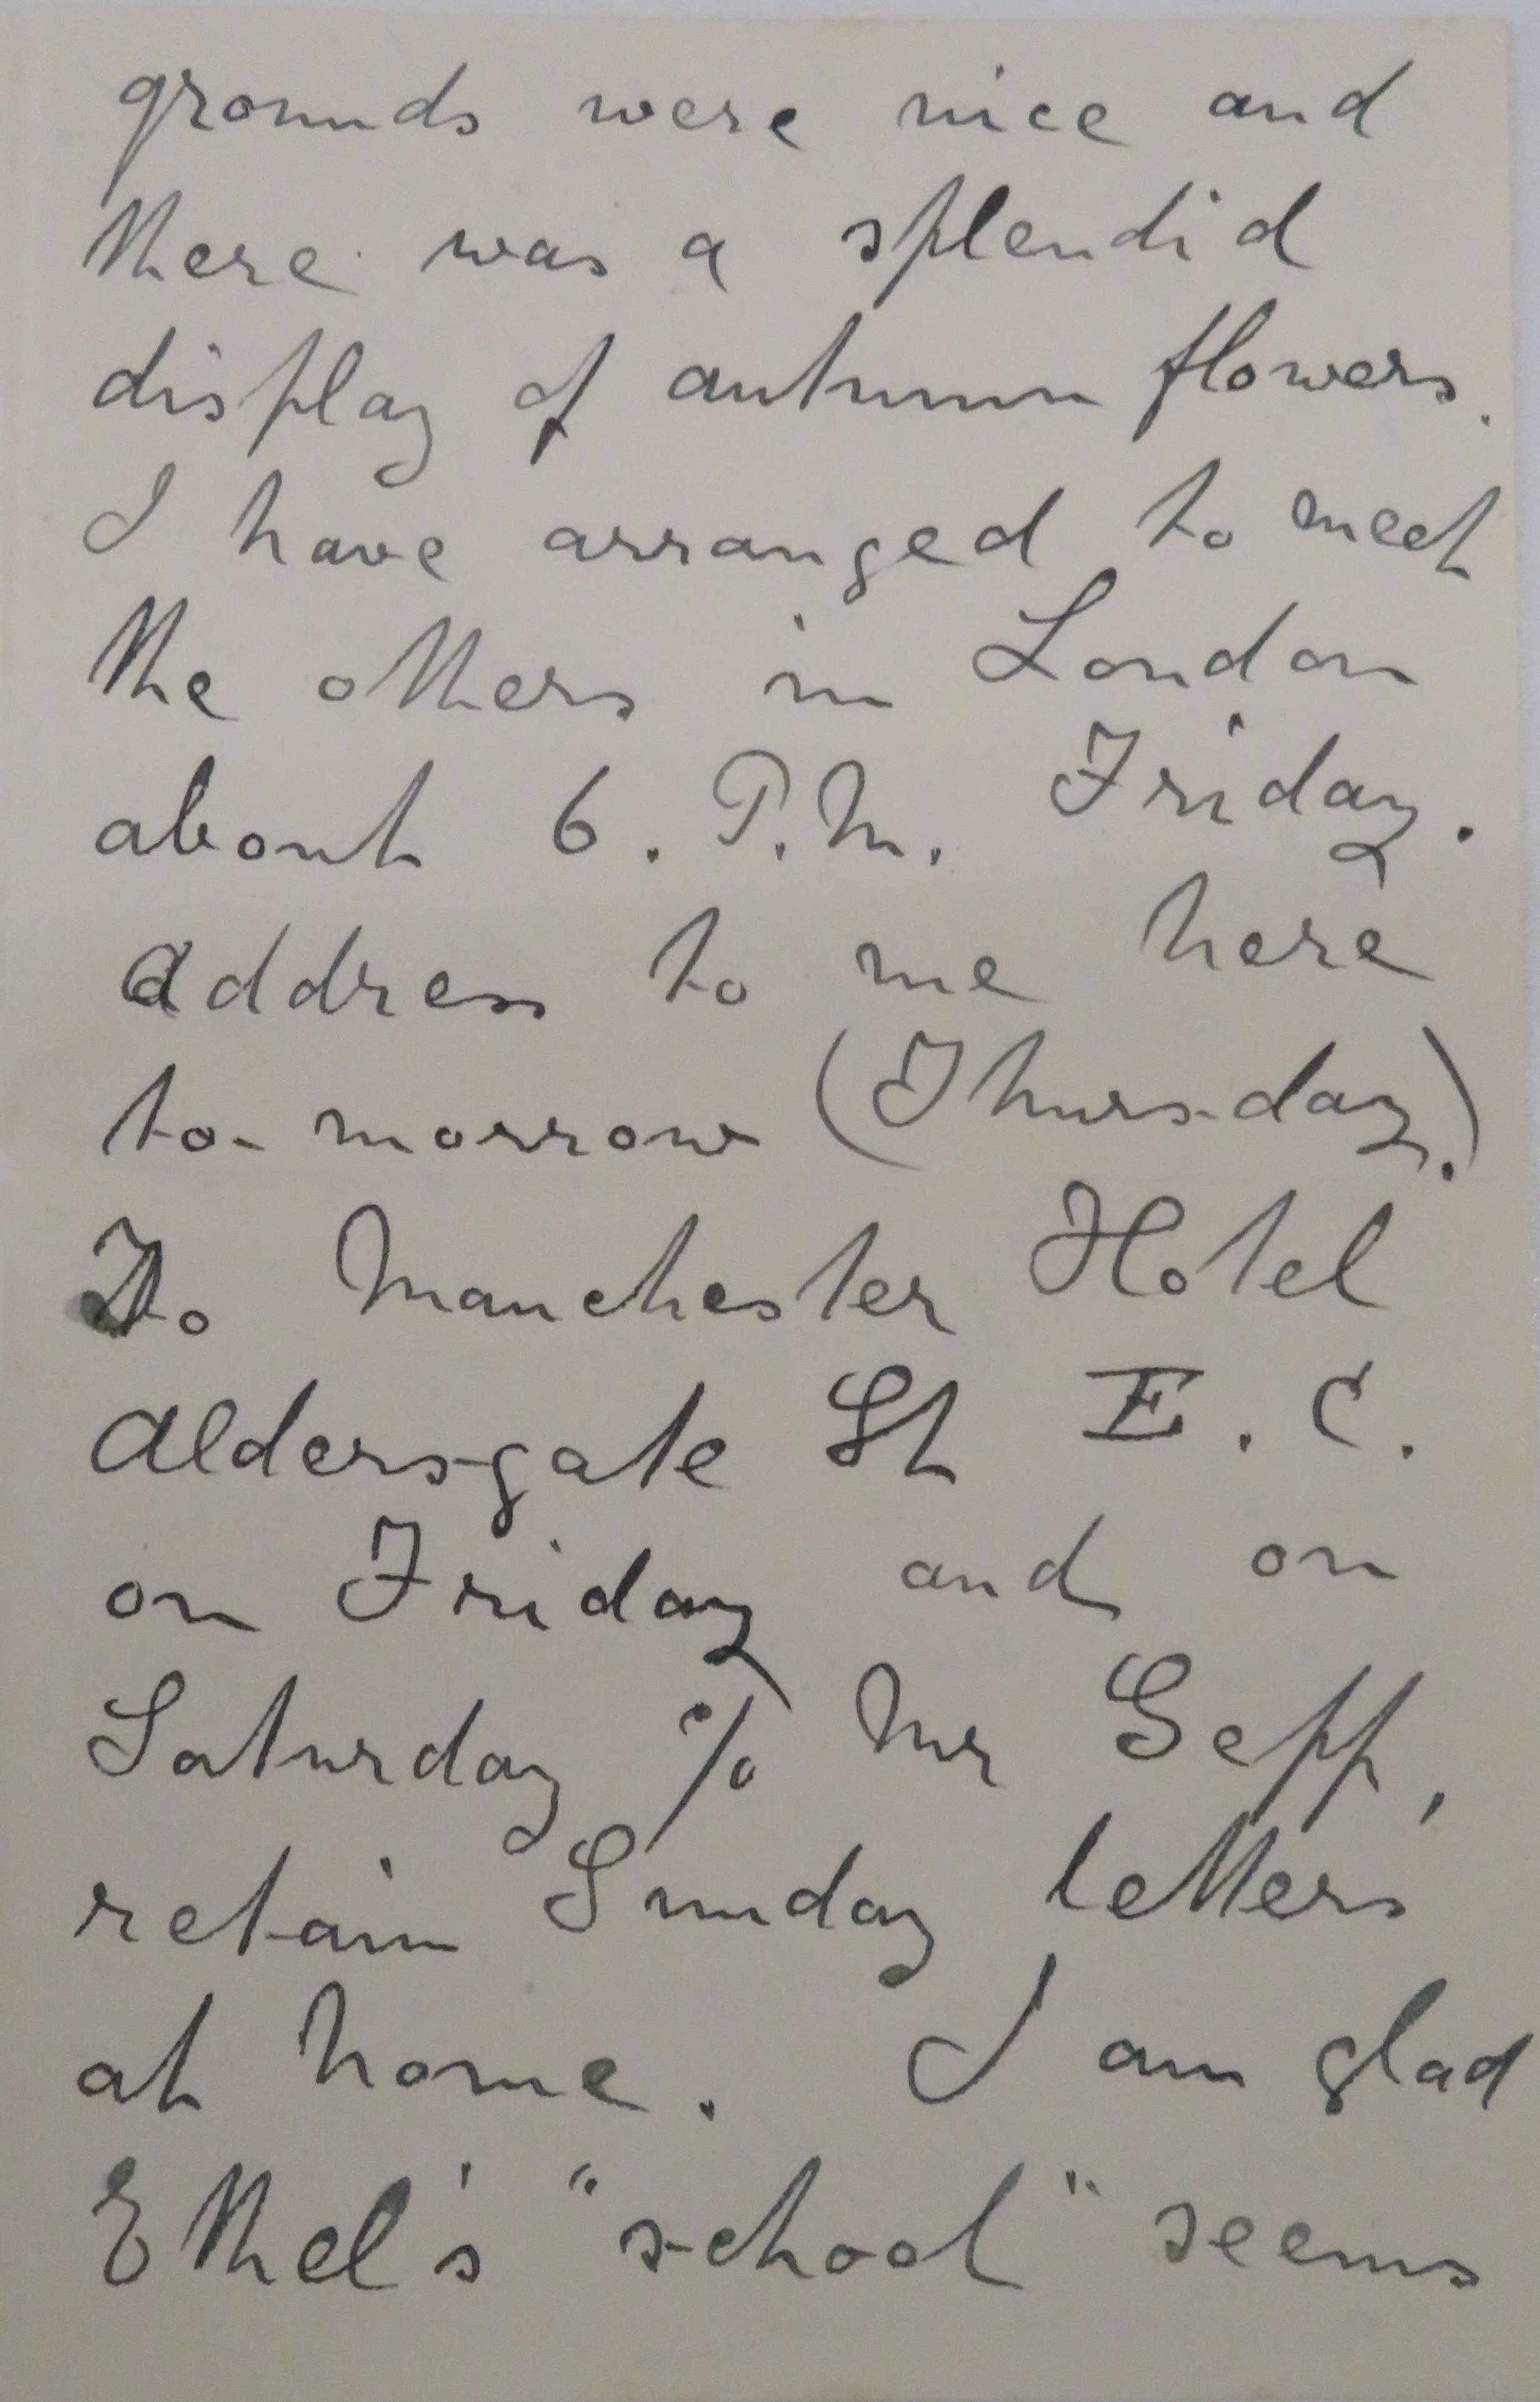 grounds were nice and
there was a splendid
display of autumn flowers.
I have arranged to meet
the others in London
about 6. P.M. Friday.
Address to me here
to-morrow (Thursday.)
To Manchester Hotel
Aldersgate St E. C.
on Friday and on
Saturday c/o Mr Gepp,
retain Sunday letters
at home. I am glad
Ethel's "school" seems